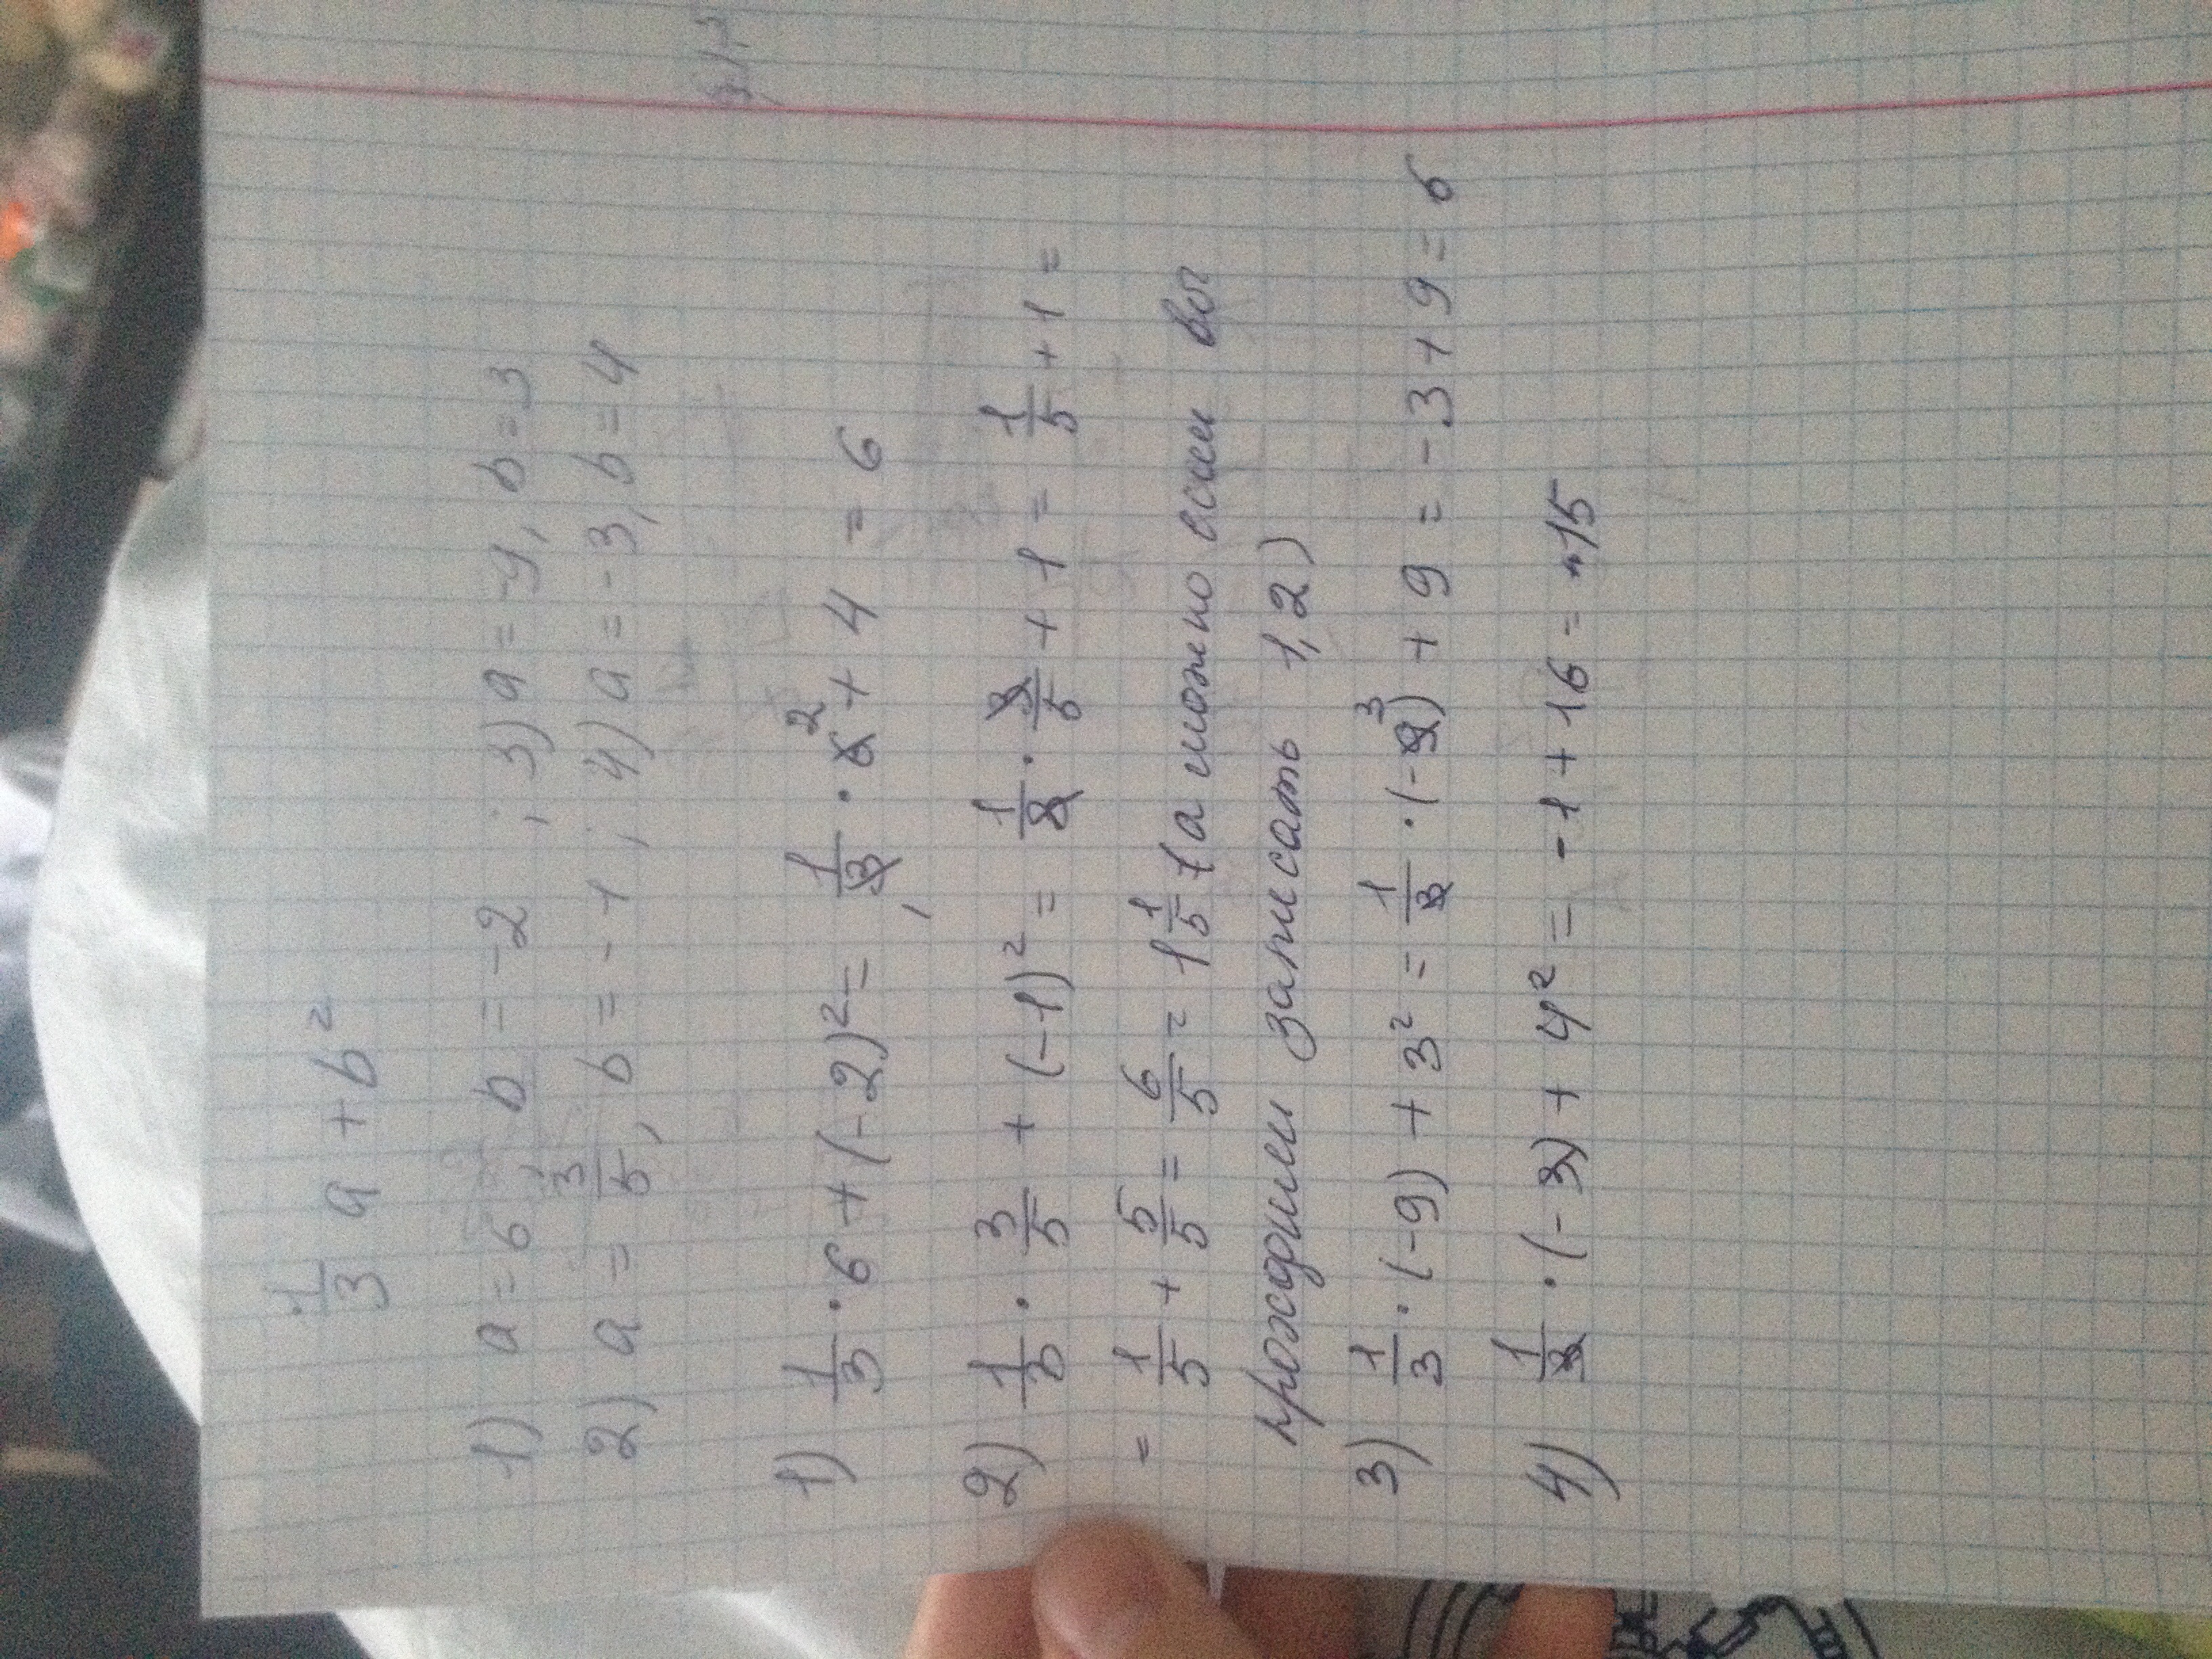 1/3 a + b²
1) a = 6, b = -2 ; 3) a = -9, b = 3
2) a = 3/5, b = -1 ; 4) a = -3, b = 4
1) 1/3 · 6 + (-2)² = 1/3 · 6 2 + 4 = 6
2) 1/3 · 3/5 + (-1)² = 1/3 · 3/5 + 1 = 1/5 + 1 =
= 1/5 + 5/5 = 6/5 = 1 1/5 (а можно если вы
проходили записать 1,2)
3) 1/3 · (-9) + 3² = 1/3 · (-9 3) + 9 = -3 + 9 = 6
4) 1/3 · (-3) + 4² = -1 + 16 = 15